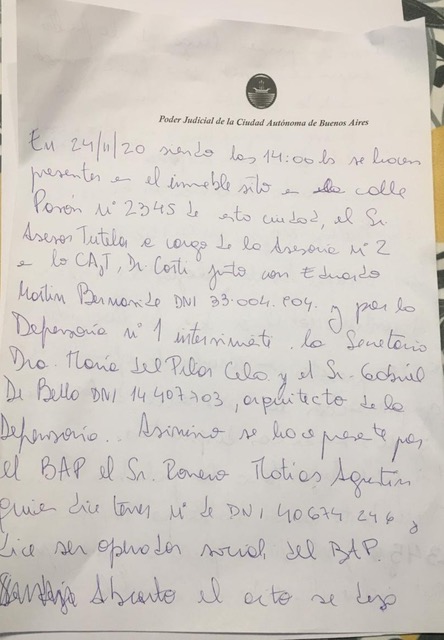 Poder Judicial de la Ciudad Autónoma de Buenos Aires
En 24/11/20 siendo las 14:00 hs se hacen
presentes en el inmueble sito en calle
Pavón n° 2345 de esta ciudad, el Sr.
Asesor Tutelar a cargo de la Asesoría N° 2
e lo CAyT, Dr. Corti junto con Eduardo
Martin DNI 33.004.904. y por la
Defensoría n° 1 interviniente la Secretaria
Dra. María del Pilar y el Sr. Gabriel
De Bello DNI 14407703, arquitecto de la
Defensoría. Asimismo se hace presente por
el BAP el Sr. Romero Matias Agustin
quien dice tener N° de DNI 40674246 y
dice ser operador social del BAP.
Abierto el acto se deja